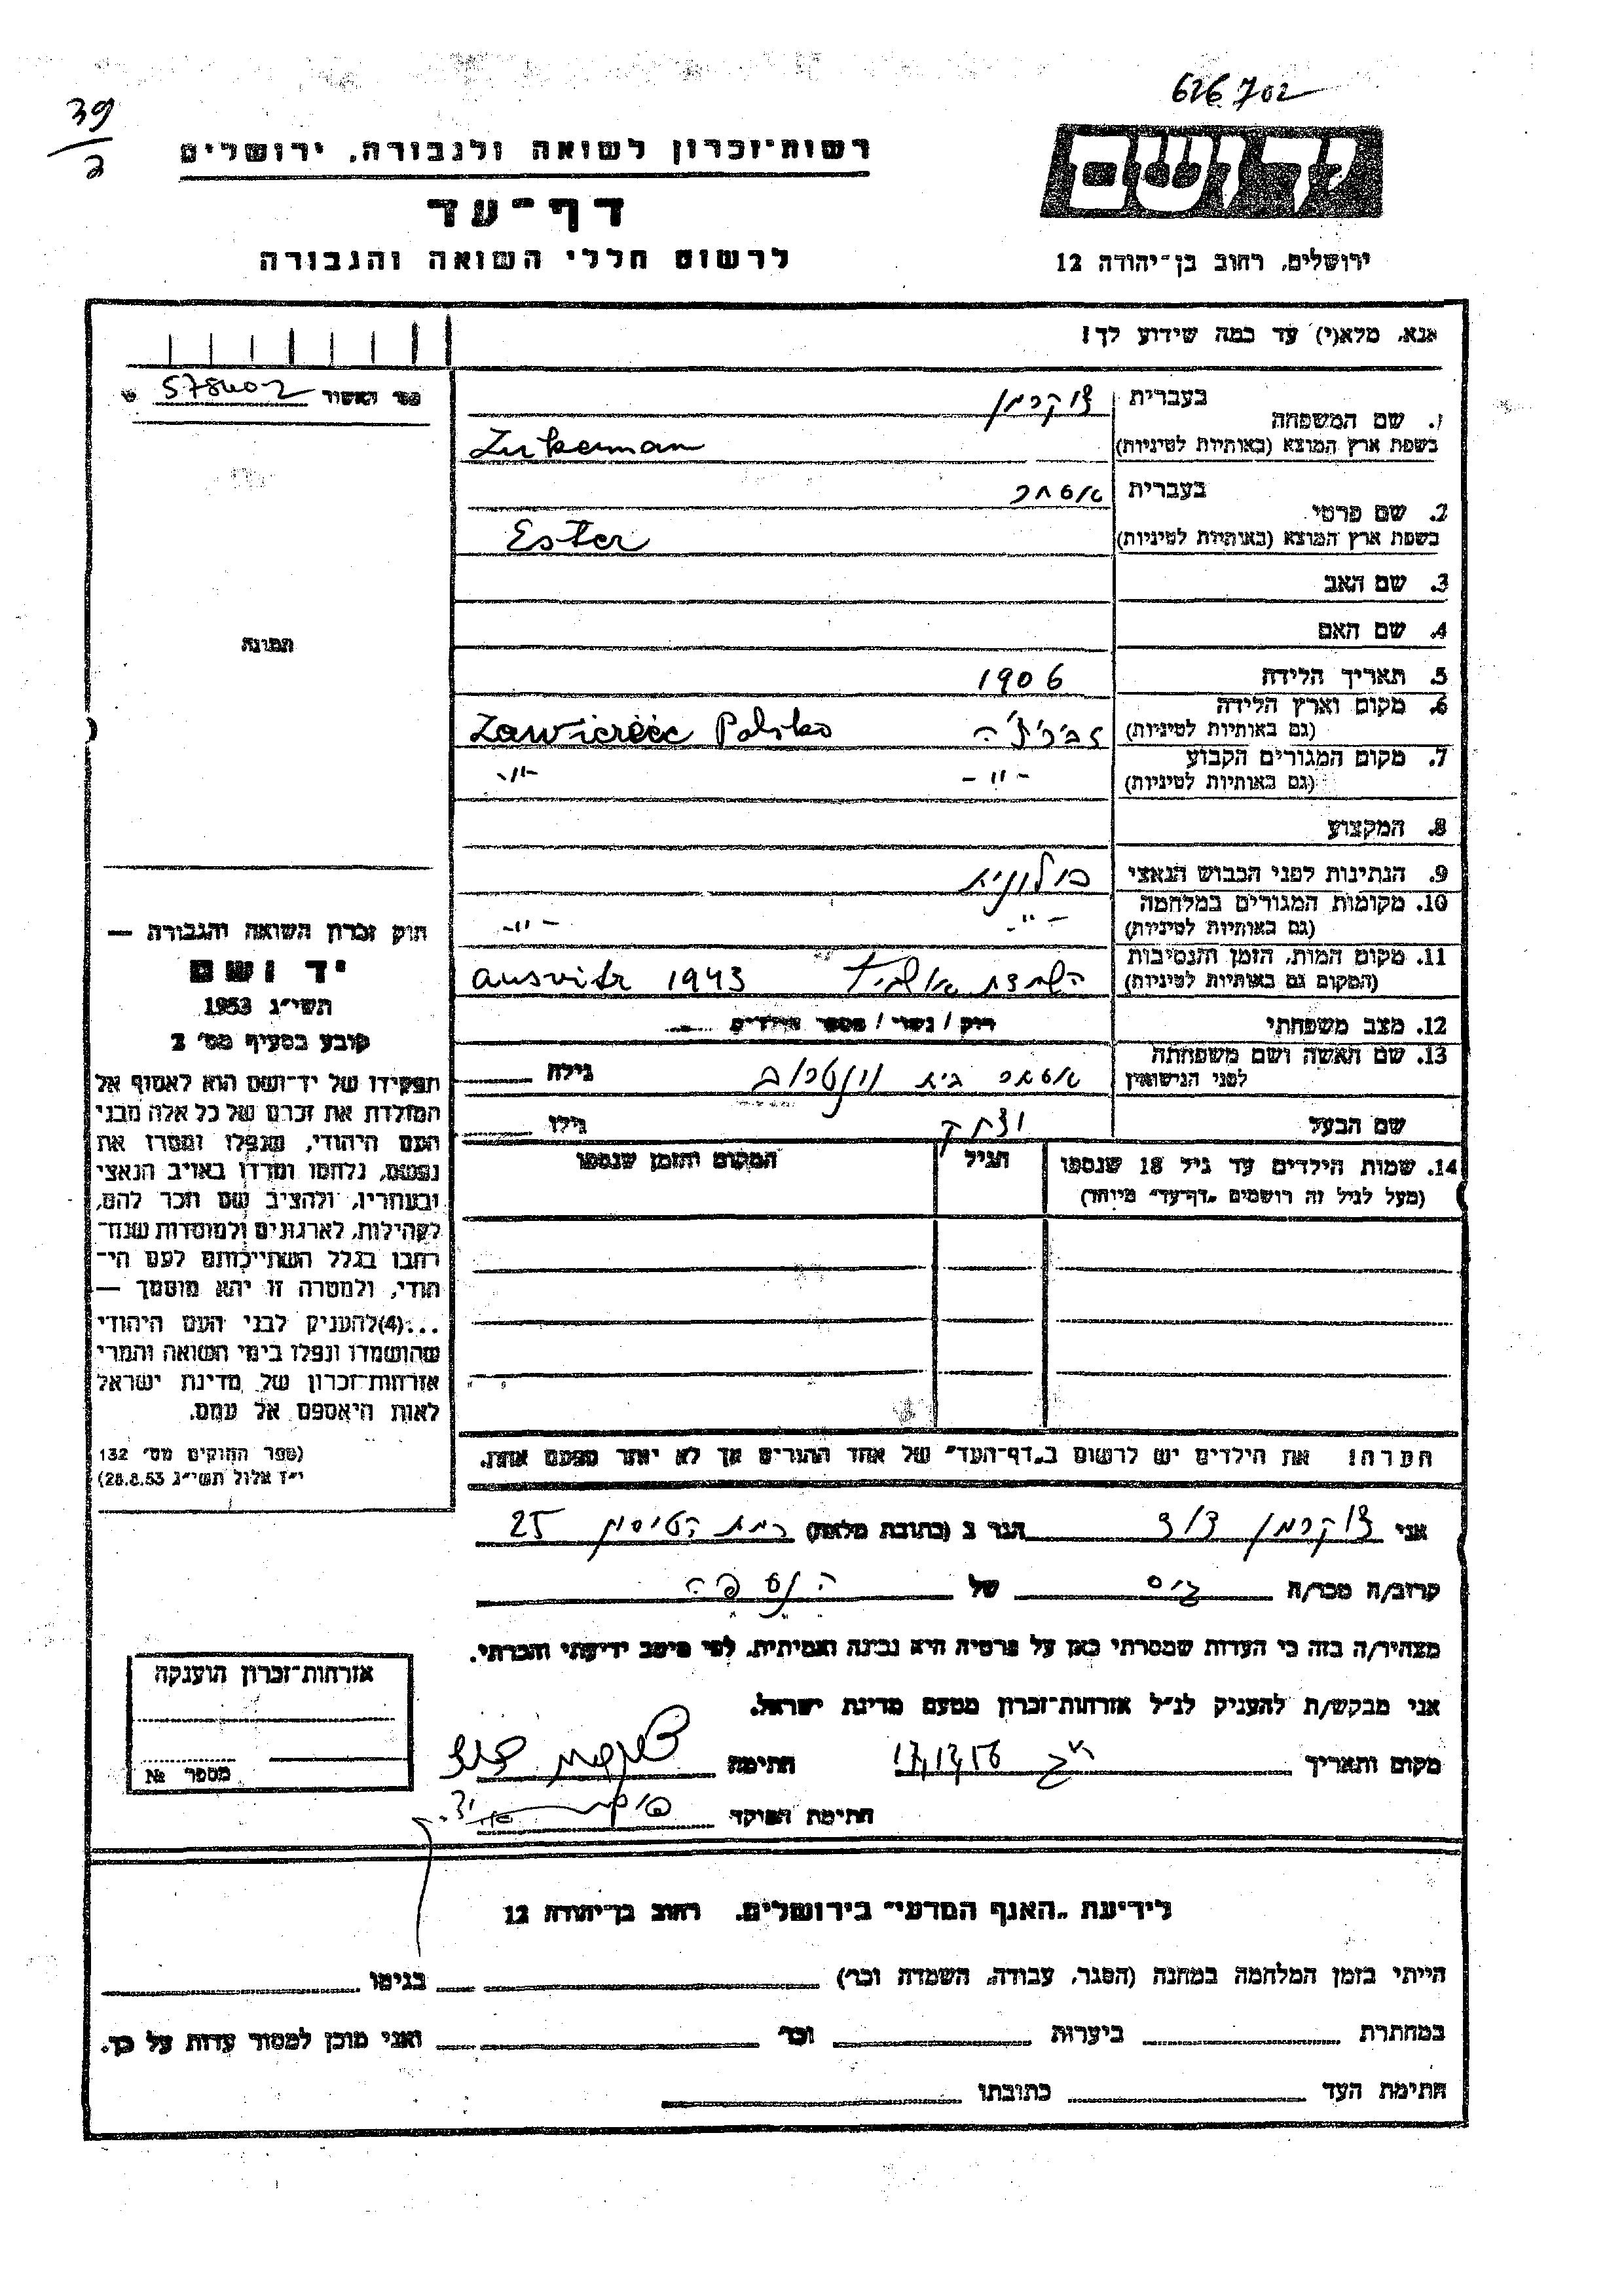 626702
39
2
רשות־זכרון לשואה ולגבורה, ירושלים
דף־עד
לרשום חללי השואה והגבורה
ירושלים, רחוב בן־יהודה 12
אנא, מלא(י) עד כמה שידוע לך!
1. שם המשפחה
בעברית צוקרמן
בשפת ארץ המוצא (באותיות לטיניות) Zukerman
2. שם פרטי
בעברית אסתר
בשפת ארץ המוצא (באותיות לטיניות) Ester
3. שם האב
4. שם האם
5. תאריך הלידה 1906
6. מקום וארץ הלידה
(גם באותיות לטיניות) Polska
7. מקום המגורים הקבוע
(גם באותיות לטיניות) -"- -"-
8. המקצוע
9. הנתינות לפני הכבוש הנאצי פולונית
10. מקומות המגורים במלחמה
(גם באותיות לטיניות) -"- -"-
11. מקום המות, הזמן והנסיבות
(המקום גם באותיות לטיניות) 1943
12. מצב משפחתי רוק / נשוי / מספר הילדים
13. שם האשה ושם משפחתה
לפני הנישואין אסתר בית גילה
שם הבעל יצחק גילו
14. שמות הילדים עד גיל 18 שנספו
(מעל לגיל זה רושמים "דף־עד" מיוחד)
הגיל
המקום והזמן שנספו
הערה: את הילדים יש לרשום ב"דף־העד" של אחד ההורים אך לא יותר מפעם אחת.
התמונה
חוק זכרון השואה והגבורה —
יד ושם
תשי"ג 1953
קובע בסעיף מס' 2
תפקידו של יד־ושם הוא לאסוף אל
המולדת את זכרם של כל אלה מבני
העם היהודי, שנפלו ומסרו את
נפשם, נלחמו ומרדו באויב הנאצי
ובעוזריו, ולהציב שם וזכר להם,
לקהילות, לארגונים ולמוסדות שנח־
רבו בגלל השתייכותם לעם הי־
הודי, ולמטרה זו יהא מוסמך —
...(4)להעניק לבני העם היהודי
שהושמדו ונפלו בימי השואה והמרי
אזרחות־זכרון של מדינת ישראל
לאות היאספם אל עמם.
(ספר החוקים מס' 132
י"ז אלול תשי"ג 28.8.53)
אני צוקרמן דוד הגר ב (כתובת מלאה) 25
קרוב/ה מכר/ה גיס של הנספה
מצהיר/ה בזה כי העדות שמסרתי כאן על פרטיה היא נכונה ואמיתית, לפי מיטב ידיעתי והכרתי.
אני מבקש/ת להעניק לנ"ל אזרחות־זכרון מטעם מדינת ישראל.
מקום ותאריך חתימה צוקרמן דוד
חתימת הפוקד
אזרחות־זכרון הוענקה
מספר №
לידיעת "האגף המדעי" בירושלים, רחוב בן־יהודה 12
הייתי בזמן המלחמה במחנה (הסגר, עבודה, השמדה וכו') בגיטו
במחתרת ביערות וכו' ואני מוכן למסור עדות על כך.
חתימת העד כתובתו